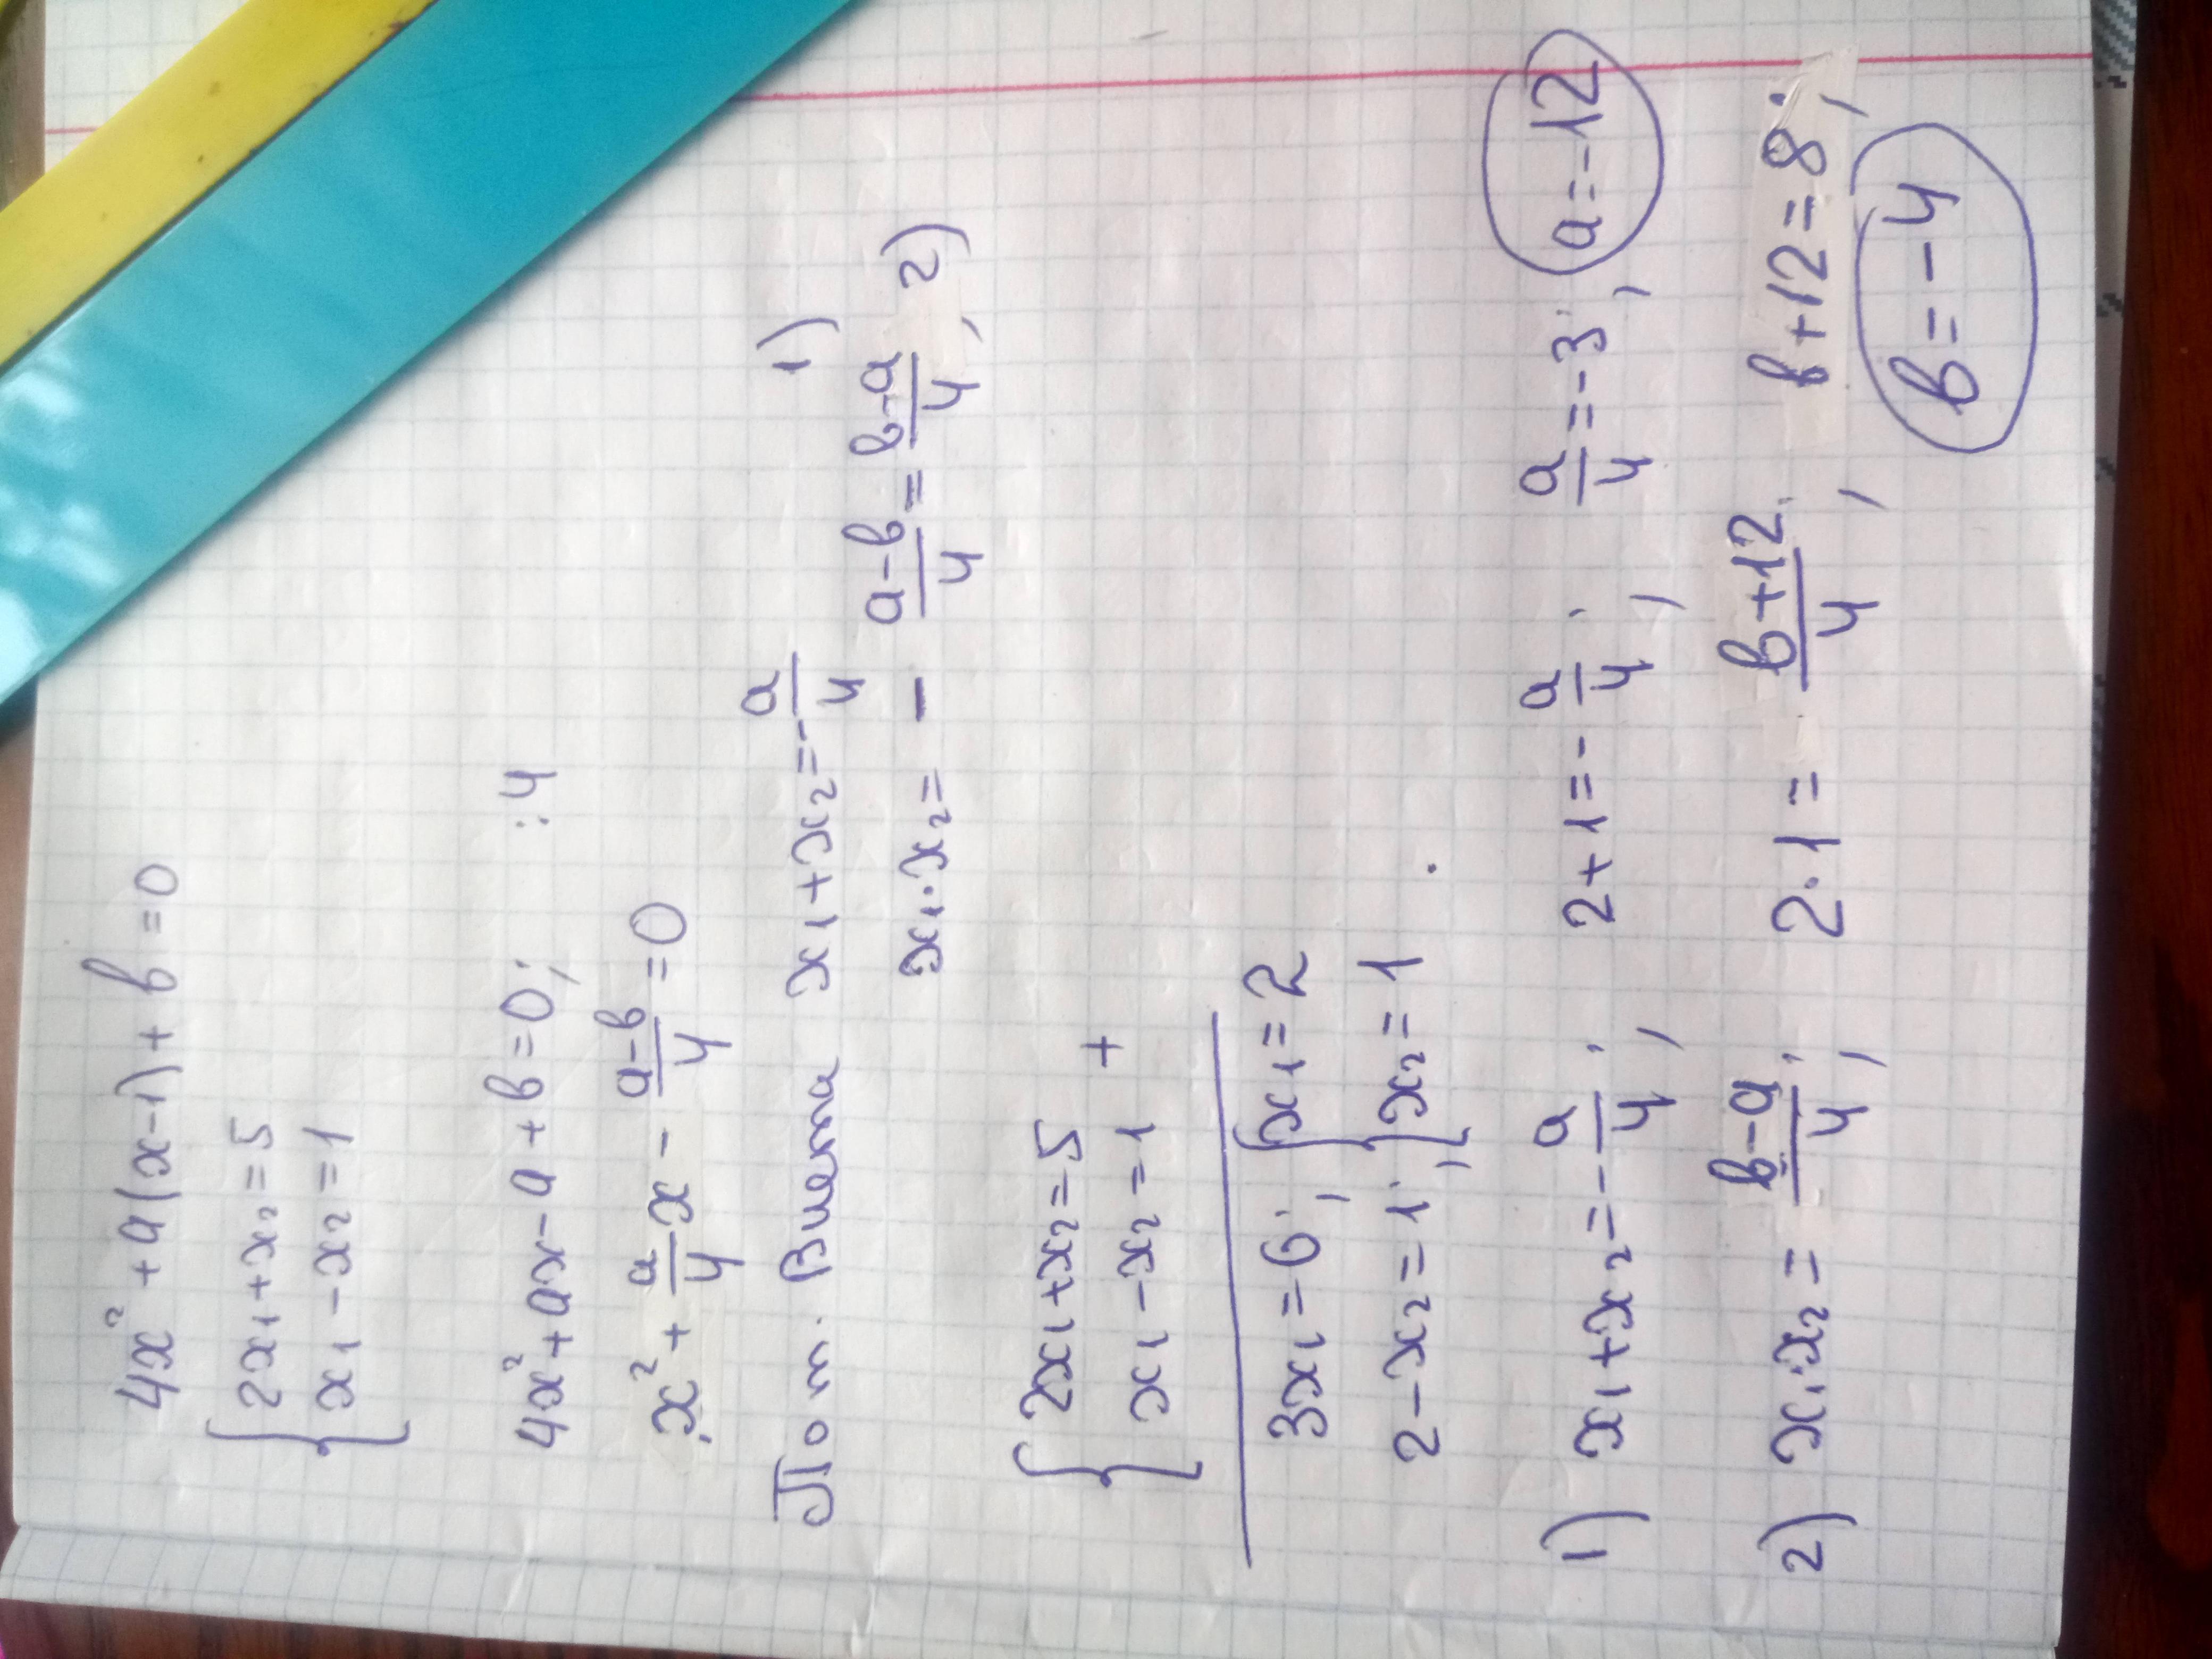 4x² + a(x-1) + b = 0
{ 2x₁ + x₂ = 5
x₁ - x₂ = 1
4x² + ax - a + b = 0; :4
x² + a/4 x - (a-b)/4 = 0
По т. Виета x₁ + x₂ = -a/4 1)
x₁·x₂ = - (a-b)/4 = (b-a)/4, 2)
{ 2x₁ + x₂ = 5
x₁ - x₂ = 1 +
3x₁ = 6; { x₁ = 2
2 - x₂ = 1; x₂ = 1
1) x₁ + x₂ = -a/4; 2 + 1 = -a/4; a/4 = -3; a = -12
2) x₁·x₂ = (b-a)/4; 2·1 = (b+12)/4; b + 12 = 8;
b = -4